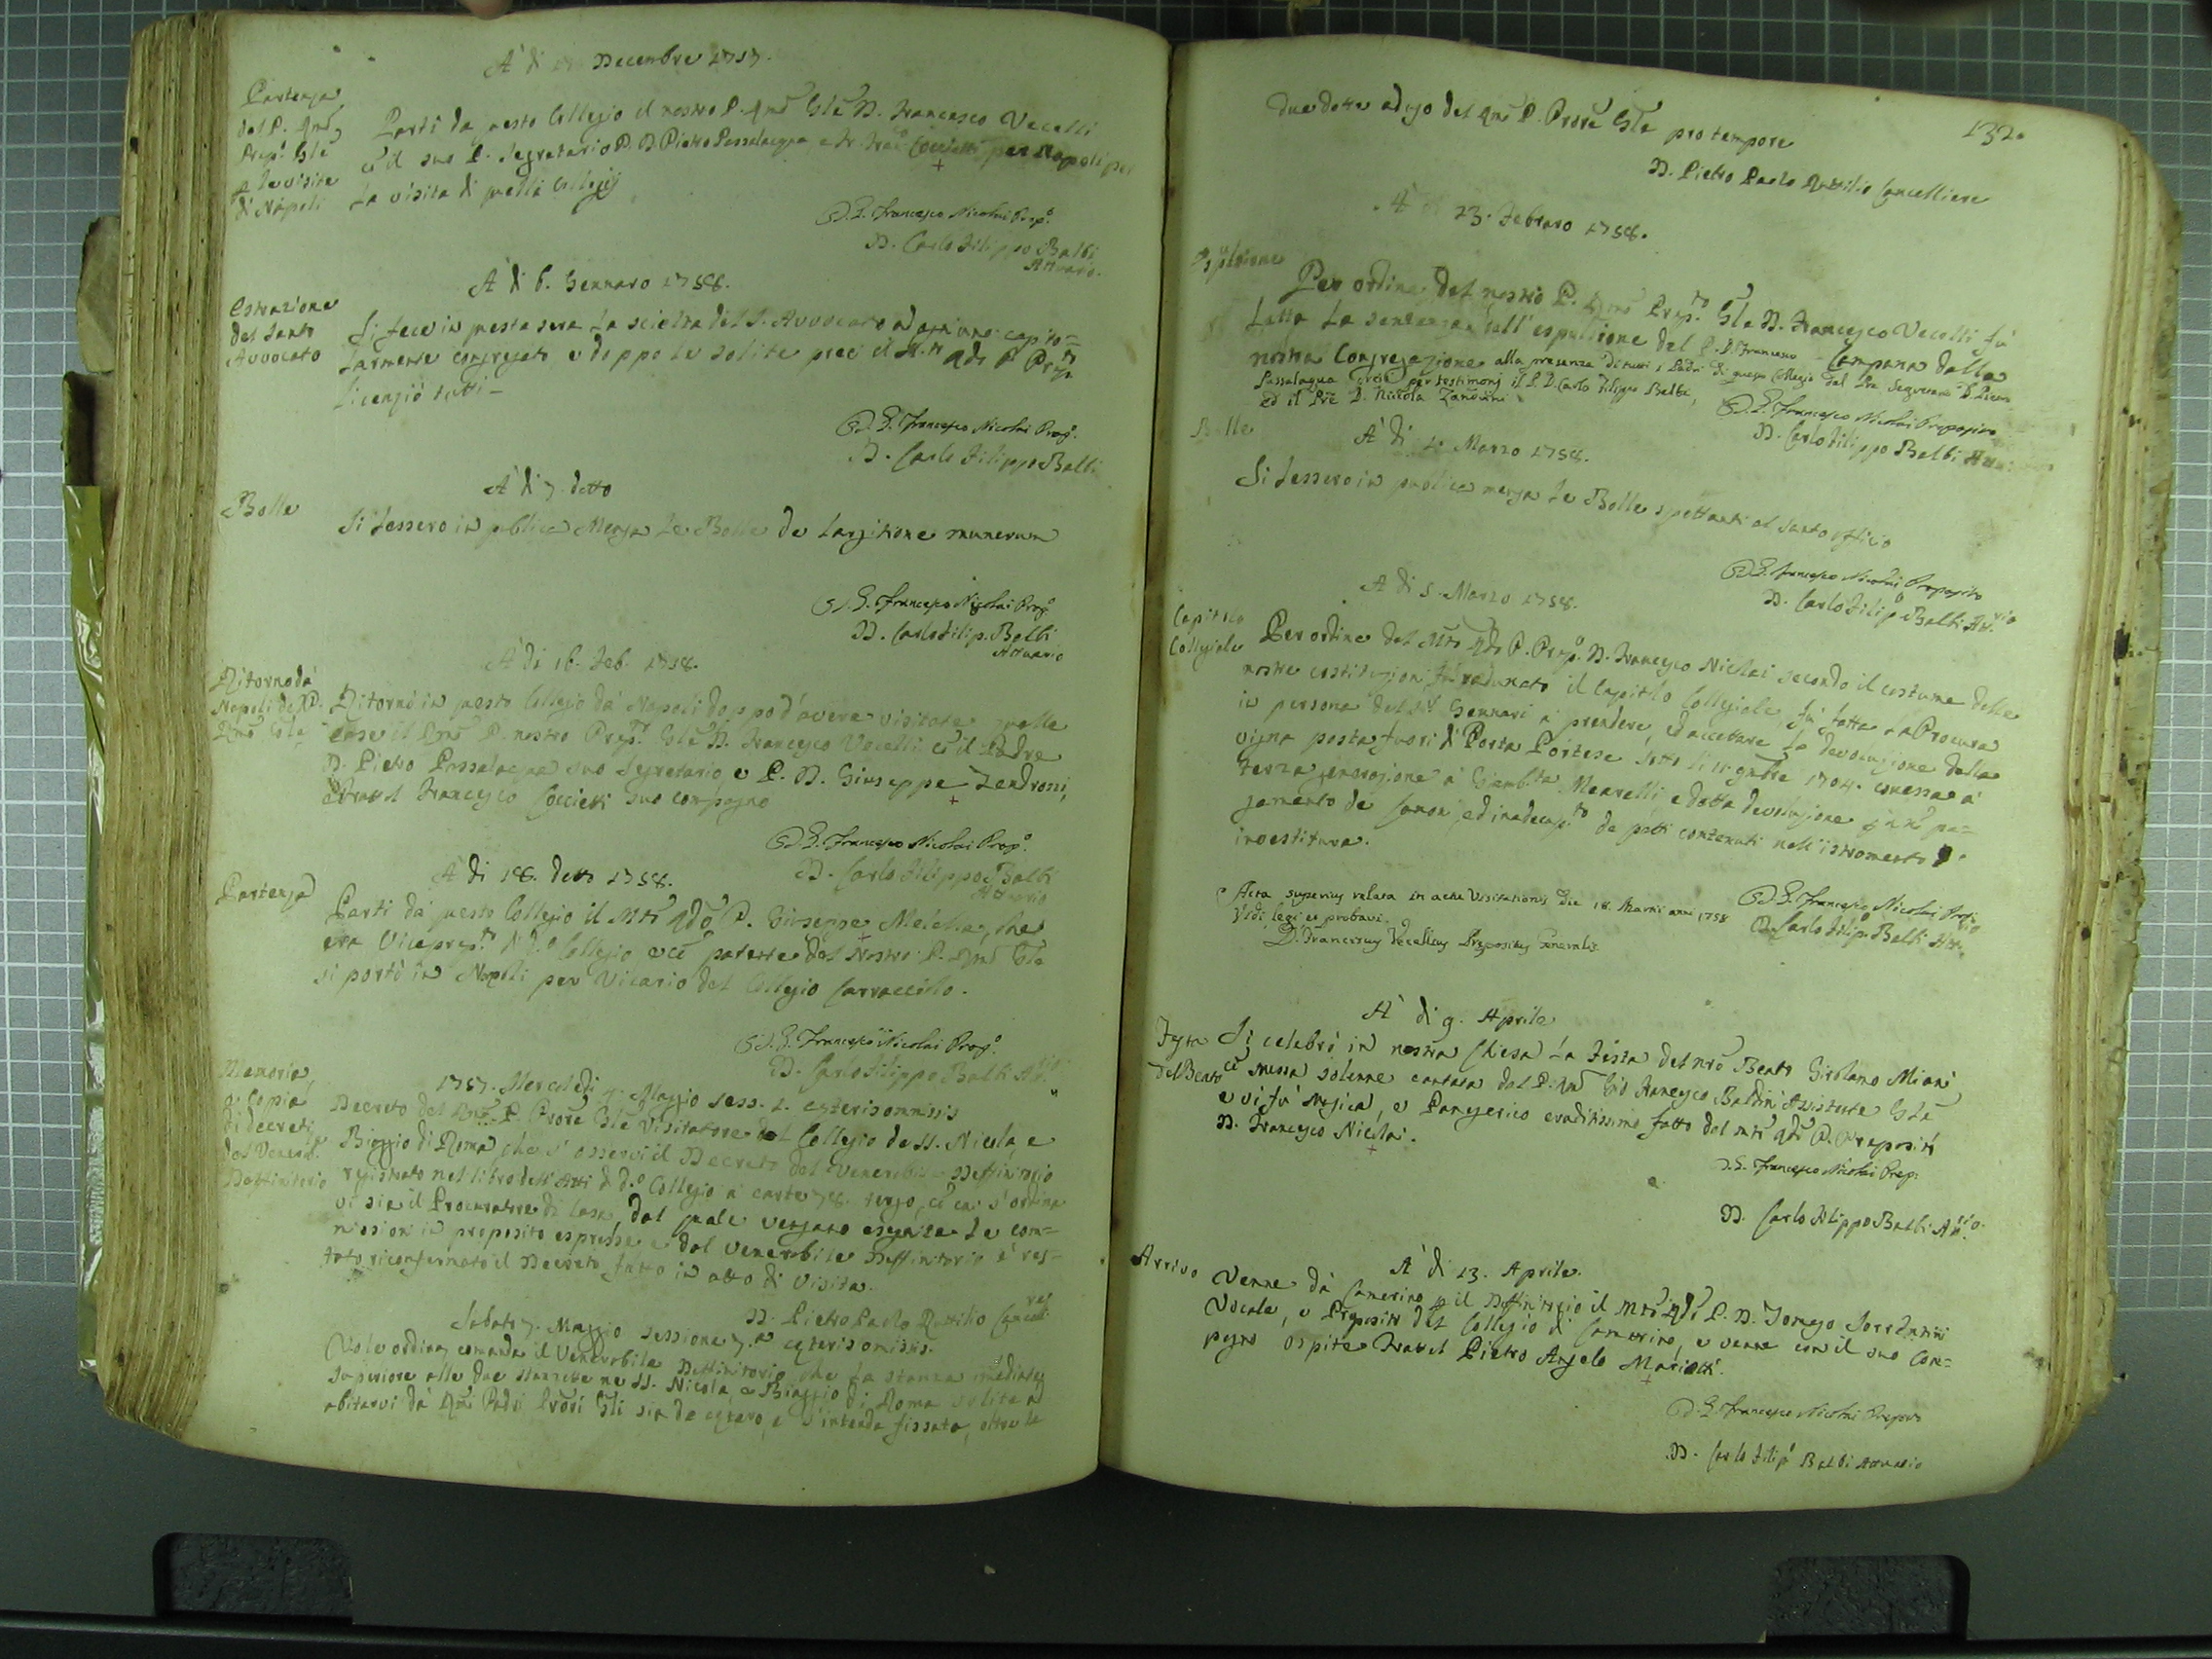 À dì Decembre 1757.
Partenza
del P. Rmo
Prep. Gñle
p la visita
di Napoli
Partì da questo Collegio il nostro P. Rmo Gñle D. Francesco Vecelli
cō il suo P. Segretario P. D. Pietro Passalacqua, e Fr. Franc. Coccietti per Napoli per
la visita di quelli Collegij
D. G. Francesco Nicolai Prep.o
D. Carlo Filippo Balbi
Attuario.
À dì 6. Gennaro 1758.
Estrazione
del Santo
Avvocato
Si fece in questa sera la scielta del S. Avvocato ad ogniuno capito=
larmente congregato, e doppo le solite preci il M.to Rdo P. Prep.to
licenziò tutti-
D. G. Francesco Nicolai Prep.o
D. Carlo Filippo Balbi
À dì 7. detto
Bolle
Si lessero in publica Mensa le Bolle de largitione munerum
D. G. Francesco Nicolai Prep.o
D. Carlo Filip. Balbi
Attuario
À dì 16. Feb. 1758.
Ritorno da
Napoli del P.
Rmo Gñle
Ritornò in questo Collegio da Napoli doppo d'avere visitate quelle
Case il Rmo P. nostro Prep.to Gñle D. Francesco Vecelli cō il Padre
D. Pietro Passalacqua suo Segretario e P. D. Giuseppe Zendroni,
e Fratel Francesco Coccietti suo compagno
D. G. Francesco Nicolai Prep.o
D. Carlo Filippo Balbi
Attuario
À dì 18. detto 1758.
Partenza
Partì da questo Collegio il Mto Rdo P. Giuseppe Melchia, che
era Viceprep.to di q.o Collegio e cō patente del Nostro P. Rmo Gñle
si portò in Napoli per Vicario del Collegio Carracciolo.
D. G. Francesco Nicolai Prep.o
D. Carlo Filippo Balbi Att.rio
Memoria,
e Copia
di decreti
del Venerab.
Deffinitorio
1757. Mercoledì 4. Maggio sess. 2. cęteris omissis
Decreto del Rmo P. Prore Gñle Visitatore del Collegio de SS. Nicola, e
Biaggio di Roma che s'osservi il Decreto del Venerabile Deffinitorio
registrato nel libro degl'Atti di d.o Collegio a carte 78. tergo, cō cui s'ordina
vi sia il Procuratore di Casa, dal quale vengano eseguite le com=
missioni in proposito espresse e dal Venerabile Deffinitorio è res=
tato riconfermato il Decreto fatto in atto di Visita.
D. Pietro Paolo Ruttilio Cancell.re
Sabato 7. Maggio sessione 7.a cęteris omissis.
Vole ordina, comanda il Venerabile Deffinitorio che la stanza imediate
superiore alle due stanzette ne SS. Nicola, e Biaggio di Roma solite ad
abitarvi da Rmi Padri Prōri Gñli sia da cętero, e s'intenda fissata, oltre le
132.
due dette ad uso del Rmo P. Prore Gñle pro tempore
D. Pietro Paolo Ruttilio Cancelliere
À dì 23. Febraro 1758.
Espulsione
Per ordine del nostro P. Rmo Prep.to Gñle D. Francesco Vecelli fù
letta la sentenza dell'espulsione del P. D. Francesco Campana dalla
nostra Congregazione alla presenza di tutti i Padri di questo Collegio dal Pre Segretario D. Pietro
Passalaqua per testimonj il P. D. Carlo Filippo Balbi,
ed il Prē D. Niccola Zandrini
D. G. Francesco Nicolai Preposito
D. Carlo Filippo Balbi Attu.
Bolle
À dì 4. Marzo 1758.
Si lessero in publica mensa le Bolle spettanti al Santo officio
D. G. Francesco Nicolai Preposito
D. Carlo Filip. Balbi Att.rio
À dì 5. Marzo 1758.
Capitolo
Collegiale
Per ordine del Mto Rdo P. Prep.o D. Francesco Nicolai secondo il costume delle
nostre costituzioni fù radunato il Capitolo Collegiale, fù fatta la Procura
in persona del Sig. Gennari a prendere, ed accettare la devoluzione della
vigna posta fuori di Porta Portese sotto li 11. 9mbre 1704. concessa à
terza generazione à Giambta Mearelli, e detta devoluzione p nō pa=
gamento de canoni, ed inadempto de patti contenuti nell'istromento d'
investitura.
D. G. Francesco Nicolai Prep.o
D. Carlo Filip. Balbi Att.
Acta superius relata in actu Visitationis die 18. Martii anni 1758
Vidi, legi et probavi.
D. Franciscus Vecellius Prępositus Generalis
À dì 9. Aprile
Festa
del Beato
Si celebrò in nostra Chiesa la Festa del nrō Beato Girolamo Miani
cō messa solenne cantata dal P. Rmo Francesco Baldini Assistente Gñle
e vi fù Musica, e Panegerico eruditissimo fatto dal Mto Rdo P. Preposito
D. Francesco Nicolai.
D. G. Francesco Nicolai Prep.
D. Carlo Filippo Balbi Att.rio
À dì 23. Aprile.
Arrivo
Venne da Camerino p il Deffinitorio il Mto Rdo P. D. Tomaso Sorrentini
Vocale, e Preposito del Collegio di Camerino, e venne con il suo Com=
pagno ospite Fratel Pietro Angelo Mariotti.
D. G. Francesco Nicolai Preposto
D. Carlo Filip. Balbi Attuario